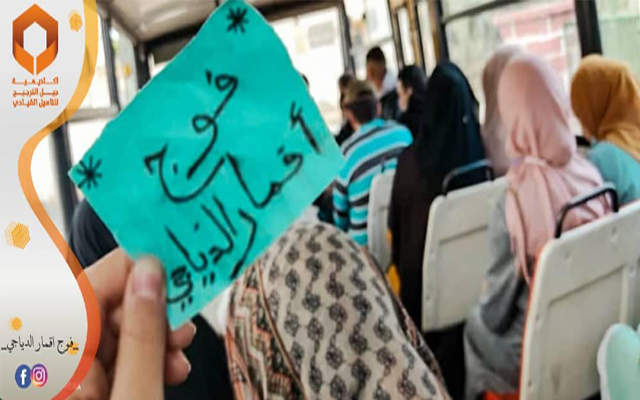 أكاديمية
جيل الترجيح
للتأهيل القيادي
فوج
أقمار الدياجي
_فوج اقمار الدياجي_